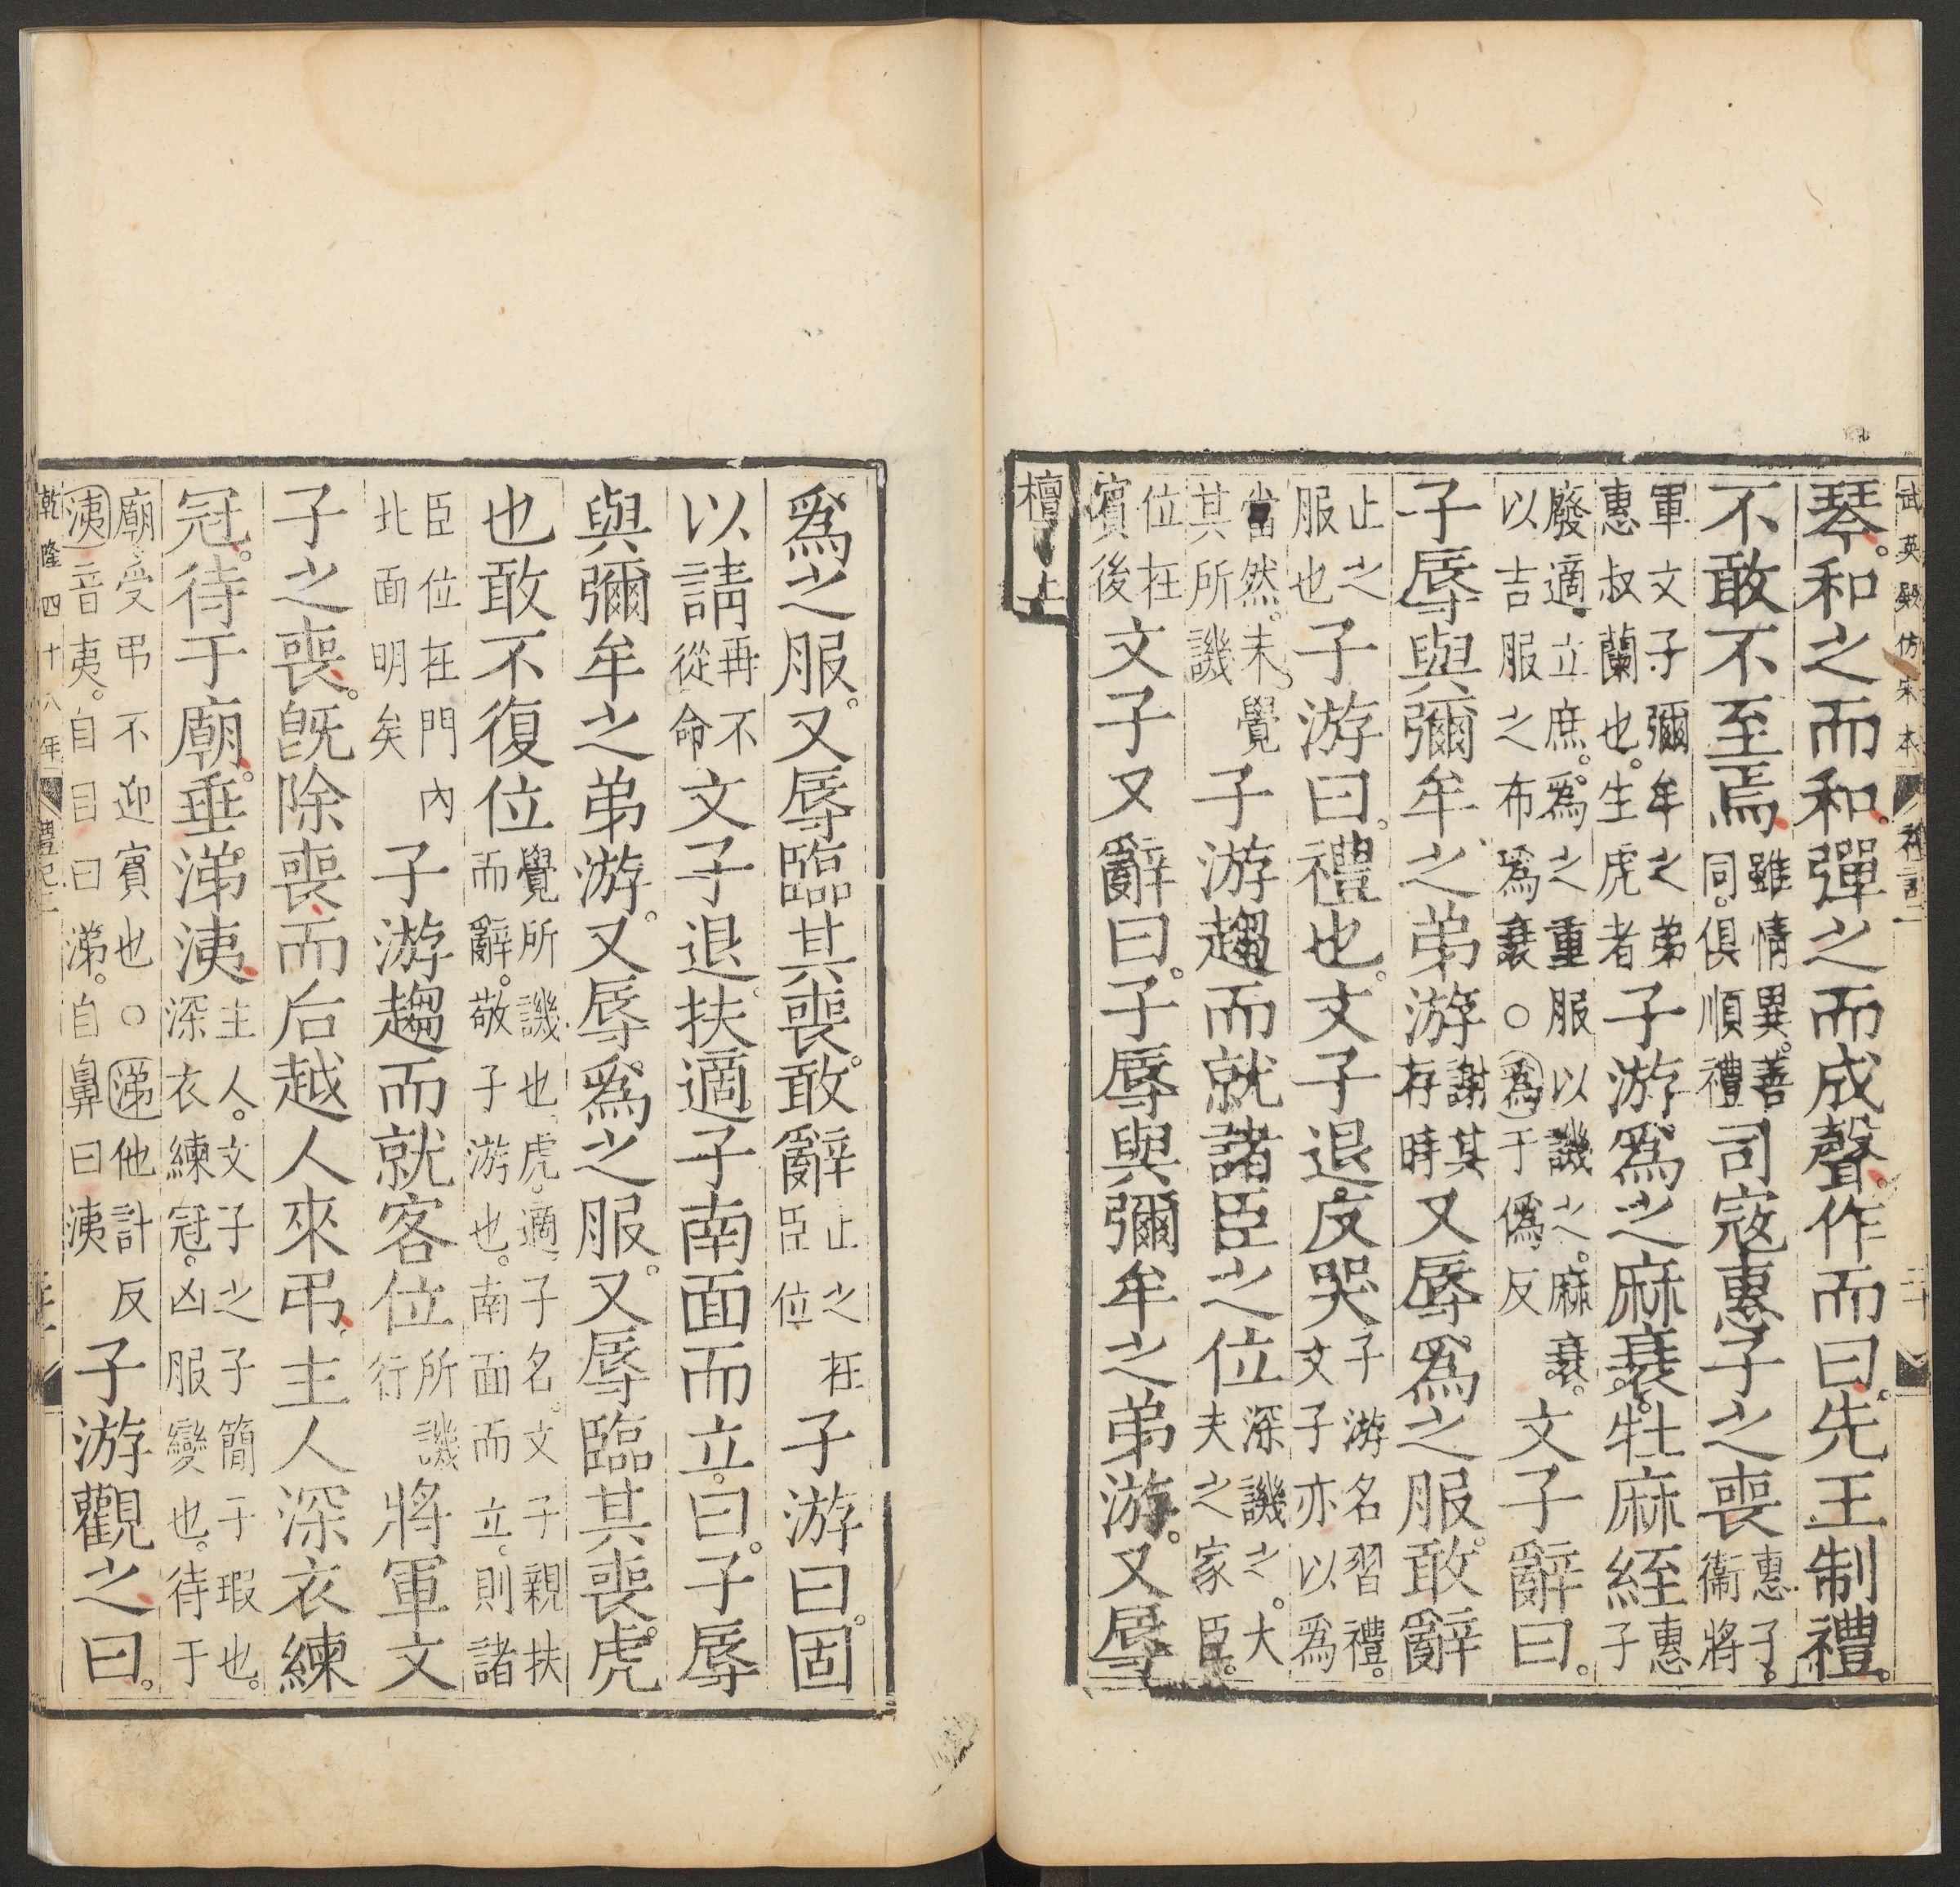 武英殿仿宋本 禮記二 二十
琴。和之而和。彈之而成聲。作而曰。先王制禮。
不敢不至焉雖情異。善同。俱順禮司寇惠子之喪惠子。衞將
軍文子彌牟之弟惠叔蘭也。生虎者子游爲之麻衰。牡麻絰惠子
廢適。立庶。爲之重服以譏之。麻衰。以吉服之布爲衰○爲于僞反文子辭曰。
子辱與彌牟之弟游謝其存時又辱爲之服。敢辭
止之服也子游曰。禮也。文子退反哭子游名習禮。文子亦以爲
當然。未覺其所譏子游趨而就諸臣之位深譏之。大夫之家臣。
位在賓後文子又辭曰。子辱與彌牟之弟游。又辱
檀弓上
爲之服。又辱臨其喪。敢辭止之在臣位子游曰。固
以請再不從命文子退。扶適子南面而立。曰。子辱
與彌牟之弟游。又辱爲之服。又辱臨其喪。虎
也敢不復位覺所譏也。虎。適子名。文子親扶而辭。敬子游也。南面而立。則諸
臣位在門內北面明矣子游趨而就客位所譏行將軍文
子之喪。旣除喪而后越人來弔。主人深衣練
冠。待于廟。垂涕洟主人。文子之子簡子瑕也。深衣練冠。凶服變也。待于
廟。受弔不迎賓也。○涕他計反洟音夷。自目曰涕。自鼻曰洟子游觀之曰。
乾隆四十八年 禮記二